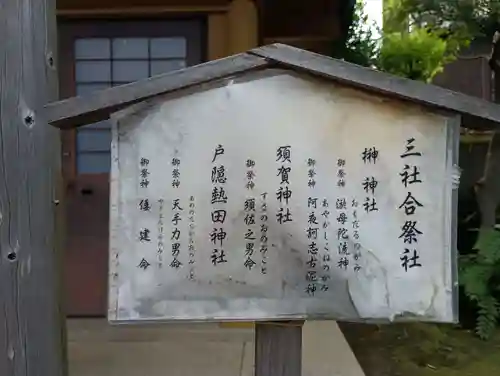 三社合祭
榊神社
御祭神 淤母陀流神
おもだるのかみ
御祭神 阿夜訶志古泥神
あやかしこねのかみ
須賀神社
御祭神 須佐之男命
すさのおのみこと
戸隠熱田神社
御祭神 天手力男命
あめのたぢからおのみこと
御祭神 倭建命
やまとたけるのみこと